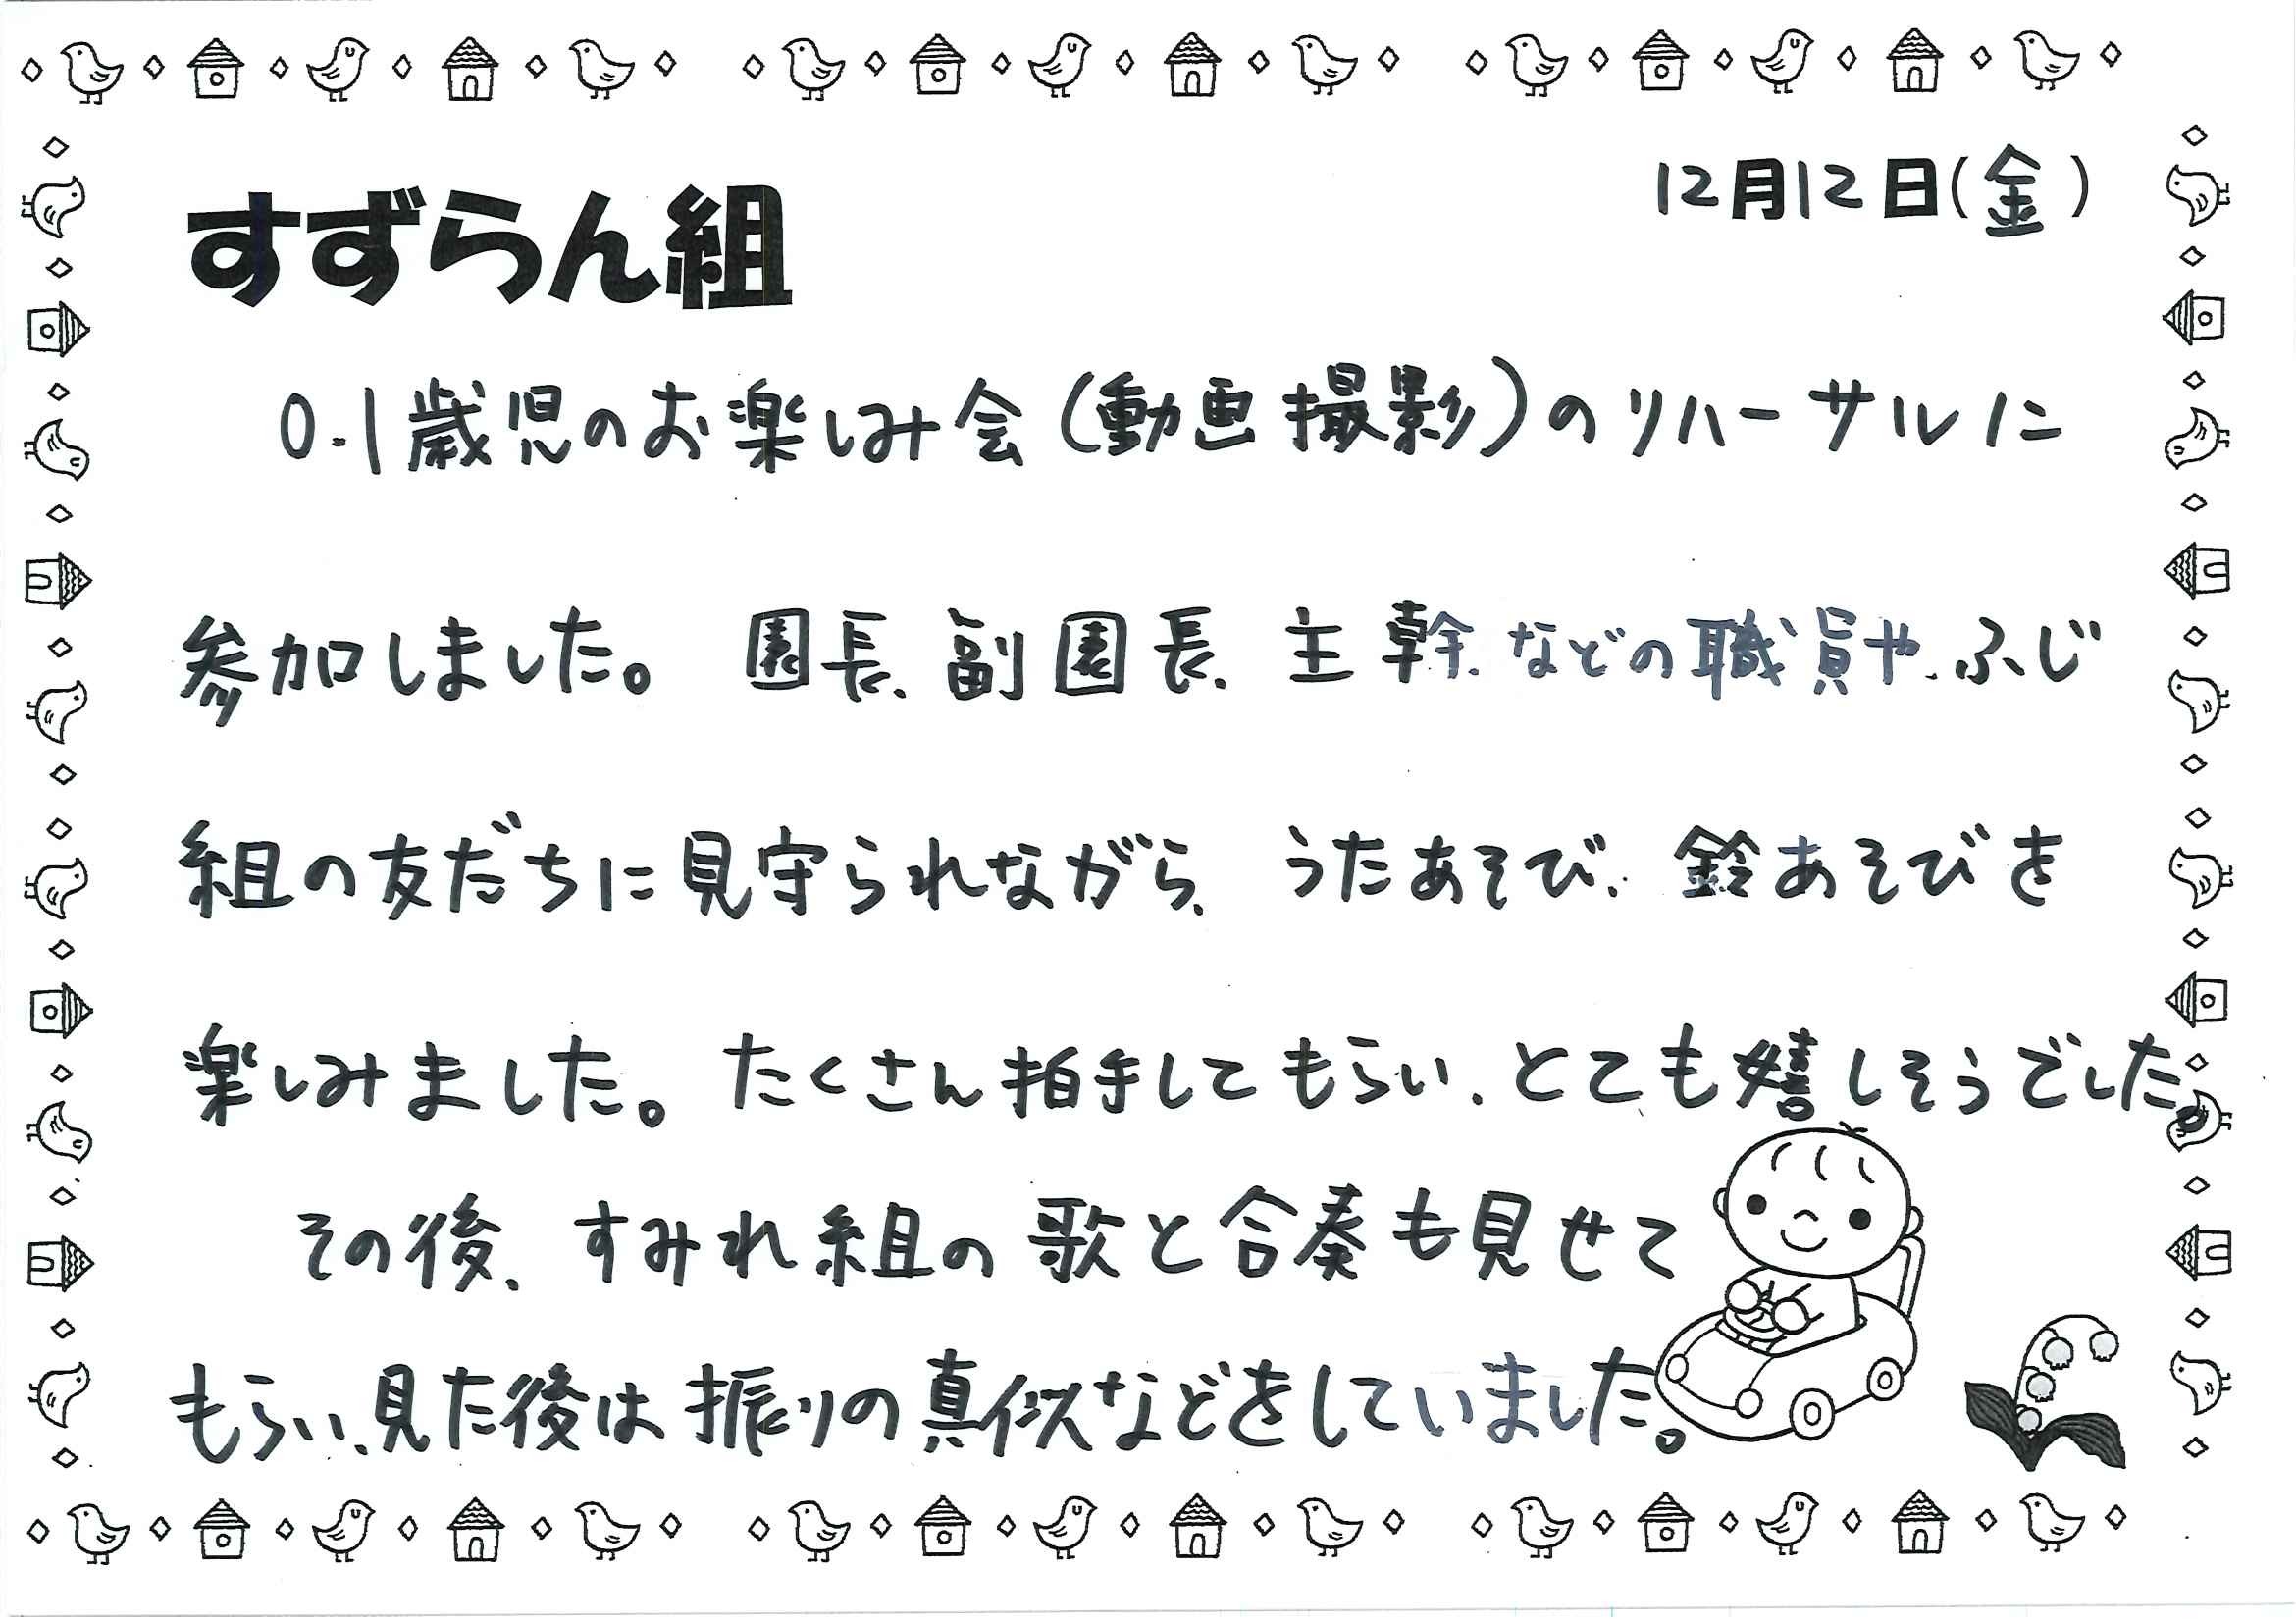 12月12日(金)
すずらん組
0.1歳児のお楽しみ会(動画撮影)のリハーサルに
参加しました。園長、副園長、主幹、などの職員や、ふじ
組の友だちに見守られながら、うたあそび、鈴あそびを
楽しみました。たくさん拍手してもらい、とても嬉しそうでした。
その後、すみれ組の歌と合奏も見せて
もらい、見た後は振りの真似などをしていました。